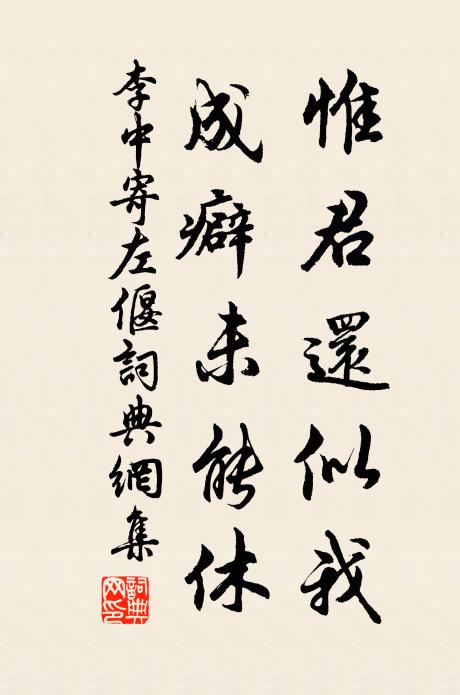 惟君還似我
成癖未能休
李中寄左偃詞典網集
詞典
网印